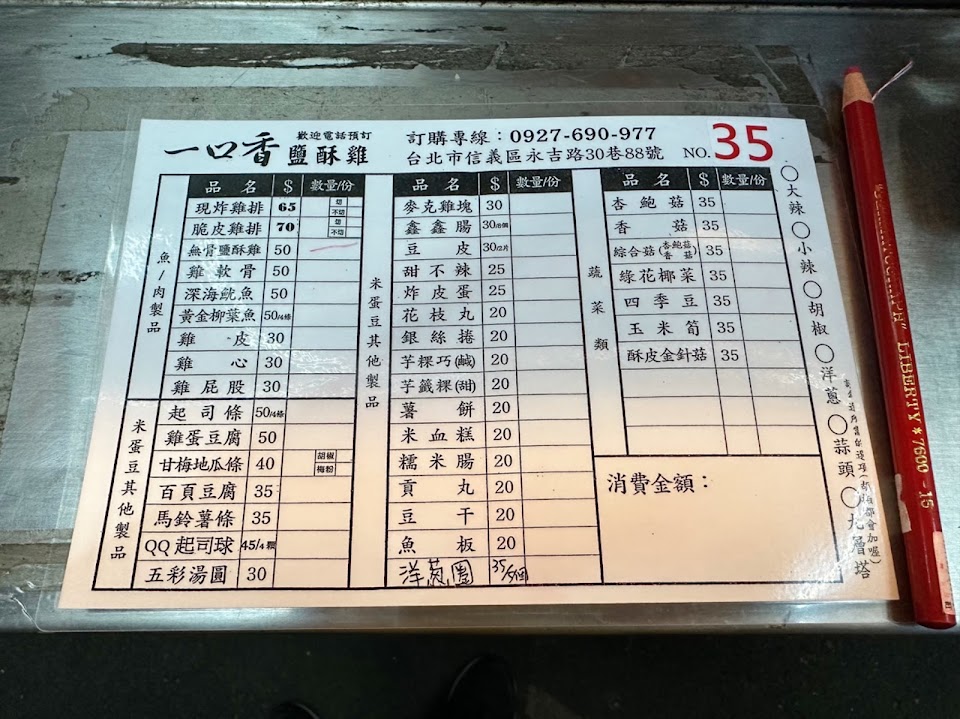 一口香 鹽酥雞
歡迎電話預訂
訂購專線：0927-690-977
台北市信義區永吉路30巷88號
NO.35
品名 $ 數量/份
魚/肉製品
現炸雞排 65 切 不切
脆皮雞排 70 切 不切
無骨鹽酥雞 50
雞軟骨 50
深海魷魚 50
黃金柳葉魚 50/4條
雞皮 30
雞心 30
雞屁股 30
米蛋豆其他製品
起司條 50/4條
雞蛋豆腐 50
甘梅地瓜條 40 胡椒 梅粉
百頁豆腐 35
馬鈴薯條 35
QQ起司球 45/4顆
五彩湯圓 30
品名 $ 數量/份
米蛋豆其他製品
麥克雞塊 30
鑫鑫腸
豆皮 30/2片
甜不辣 25
炸皮蛋 25
花枝丸 20
銀絲捲 20
芋粿巧(鹹) 20
芋籤粿(甜) 20
薯餅 20
米血糕 20
糯米腸 20
貢丸 20
豆干 20
魚板 20
洋蔥圈
品名 $ 數量/份
蔬菜類
杏鮑菇 35
香菇 35
綜合菇(杏鮑菇 香菇) 35
綠花椰菜 35
四季豆 35
玉米筍 35
酥皮金針菇 35
消費金額：
○大辣○小辣○胡椒○洋蔥○蒜頭○九層塔
LIBERTY * 7600 - 15